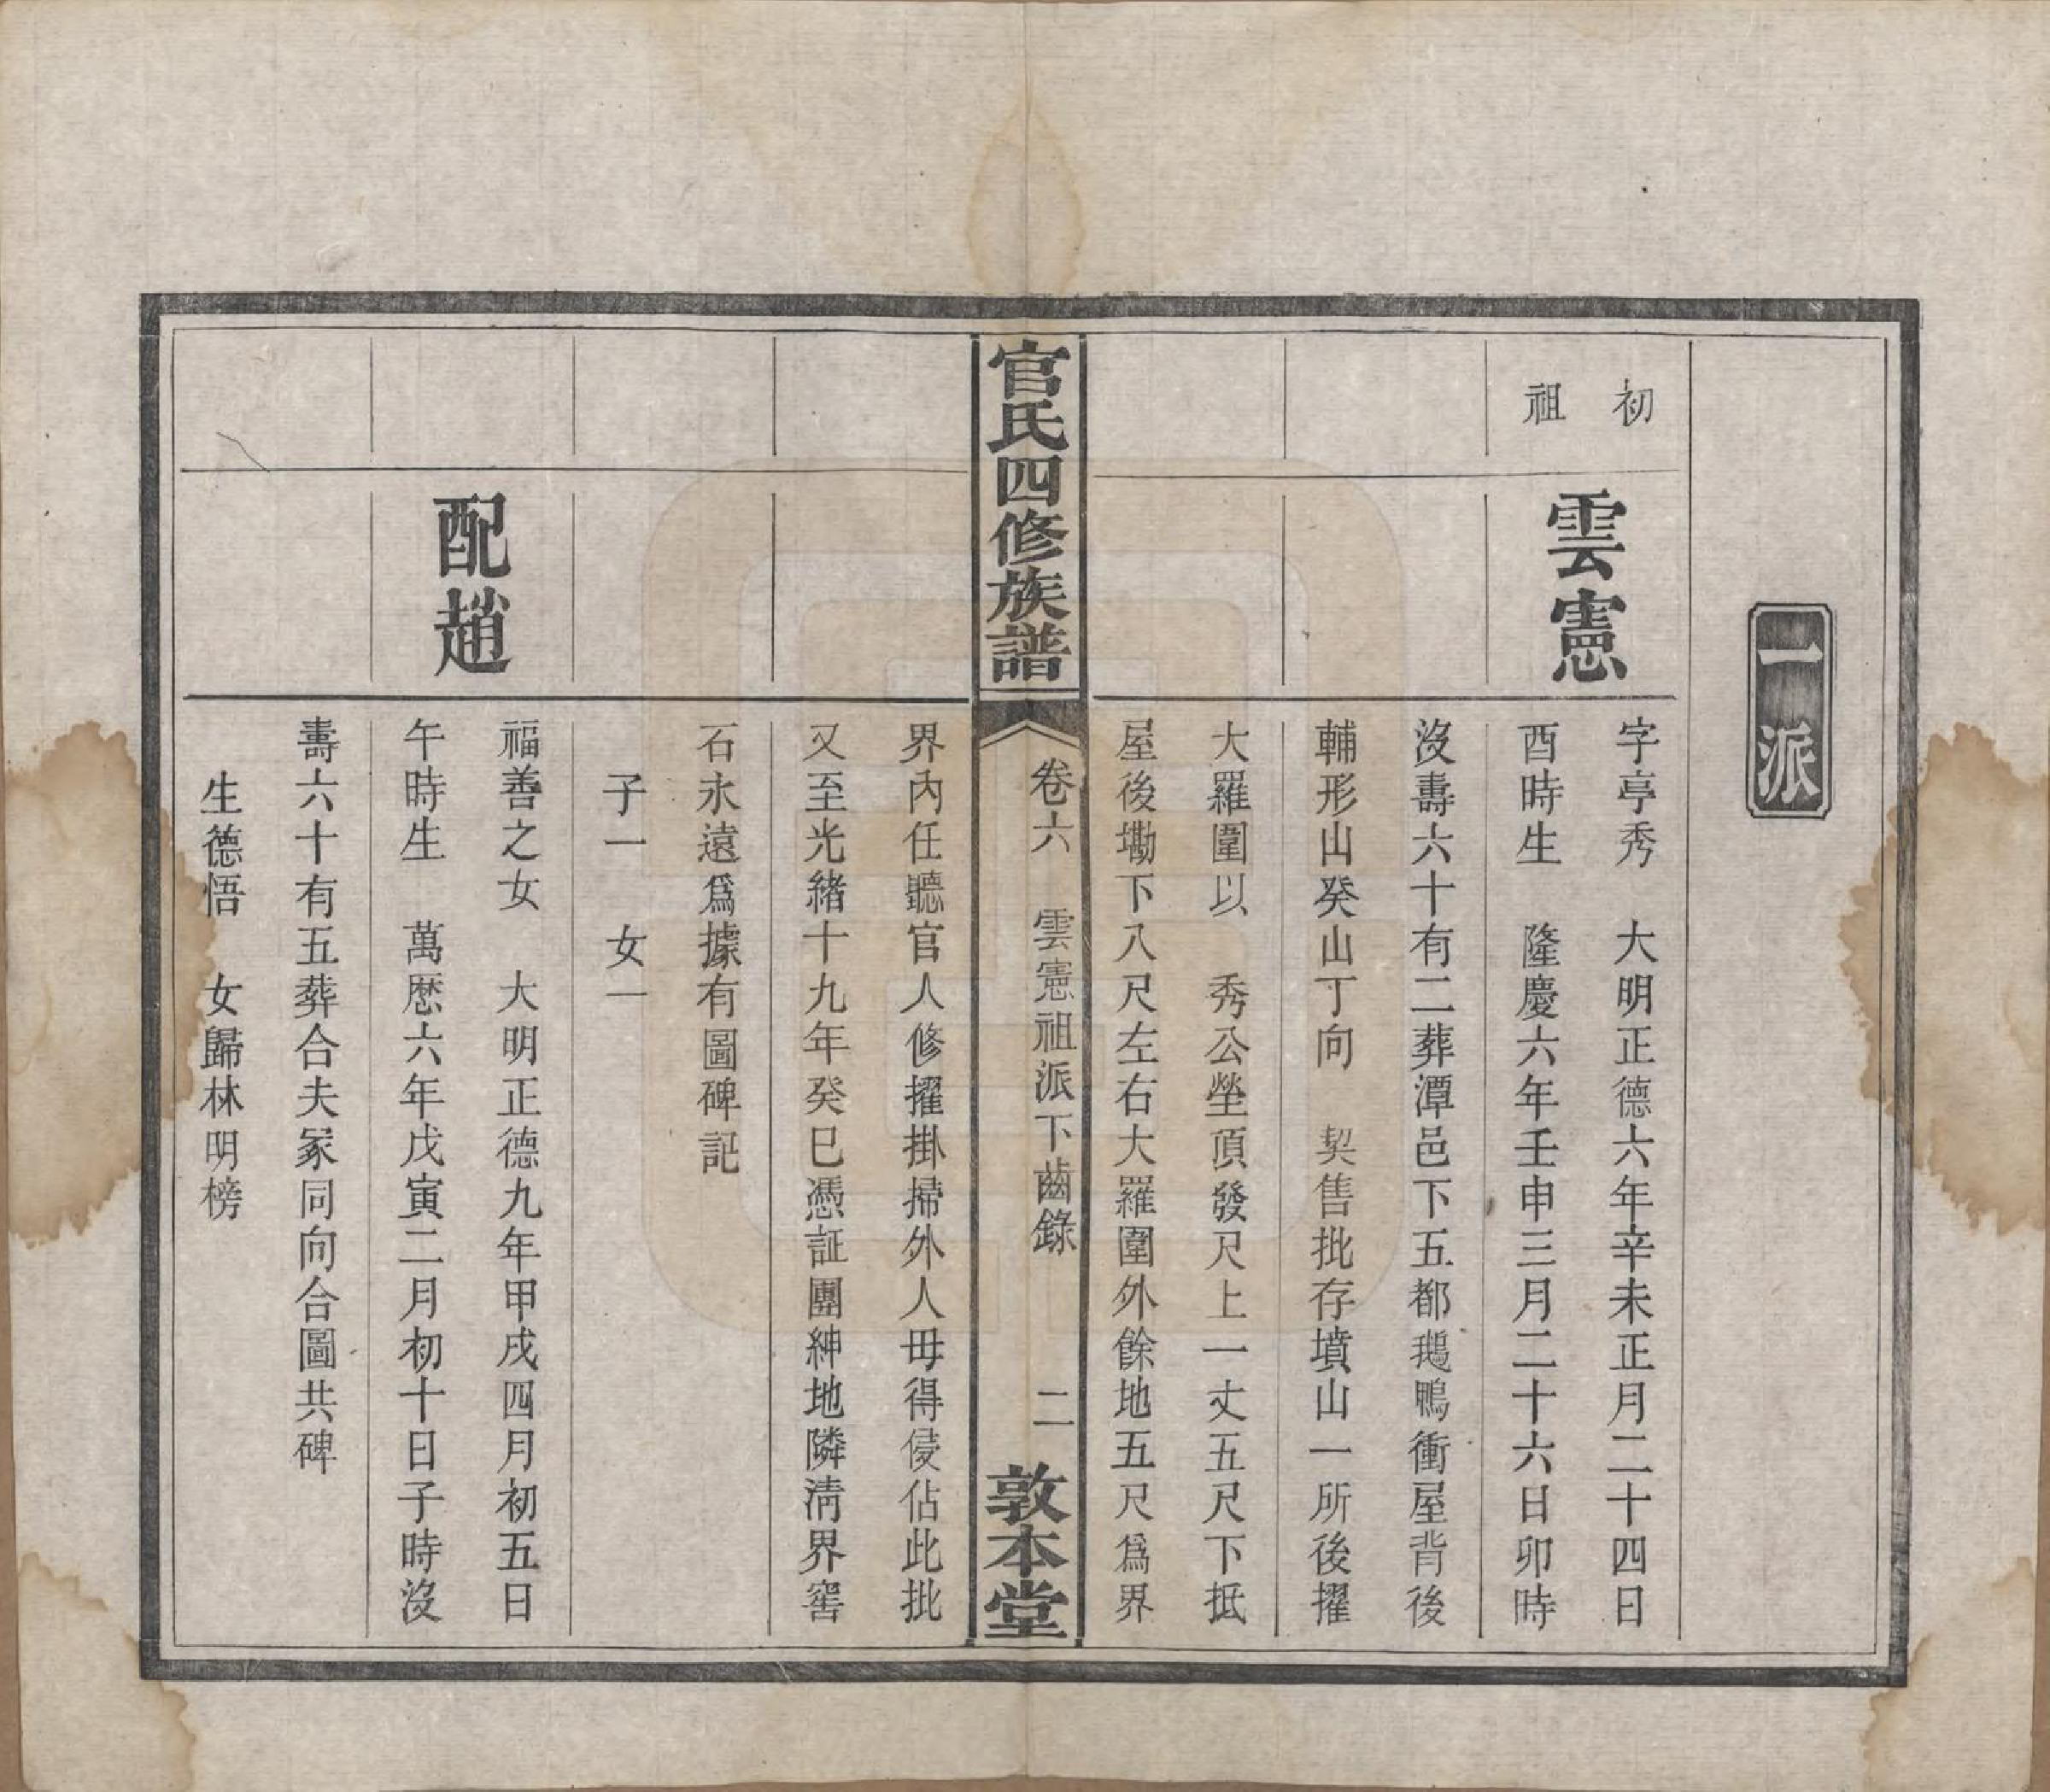 一派
初
祖
雲憲
字亭秀　大明正德六年辛未正月二十四日
酉時生　隆慶六年壬申三月二十六日卯時
沒壽六十有二葬潭邑下五都鵝鴨衝屋背後
輔形山癸山丁向　契售批存墳山一所後擢
大羅圍以　秀公塋頂發尺上一丈五尺下抵
屋後墈下八尺左右大羅圍外餘地五尺爲界
官氏四修族譜
卷六　雲憲祖派下齒錄　二
敦本堂
界內任聽官人修擢掛掃外人毋得侵佔此批
又至光緒十九年癸巳憑証團紳地隣淸界窖
石永遠爲據有圖碑記
子一　女一
配趙
福善之女　大明正德九年甲戌四月初五日
午時生　萬厯六年戊寅二月初十日子時沒
壽六十有五葬合夫冢同向合圖共碑
生德悟　女歸林明榜